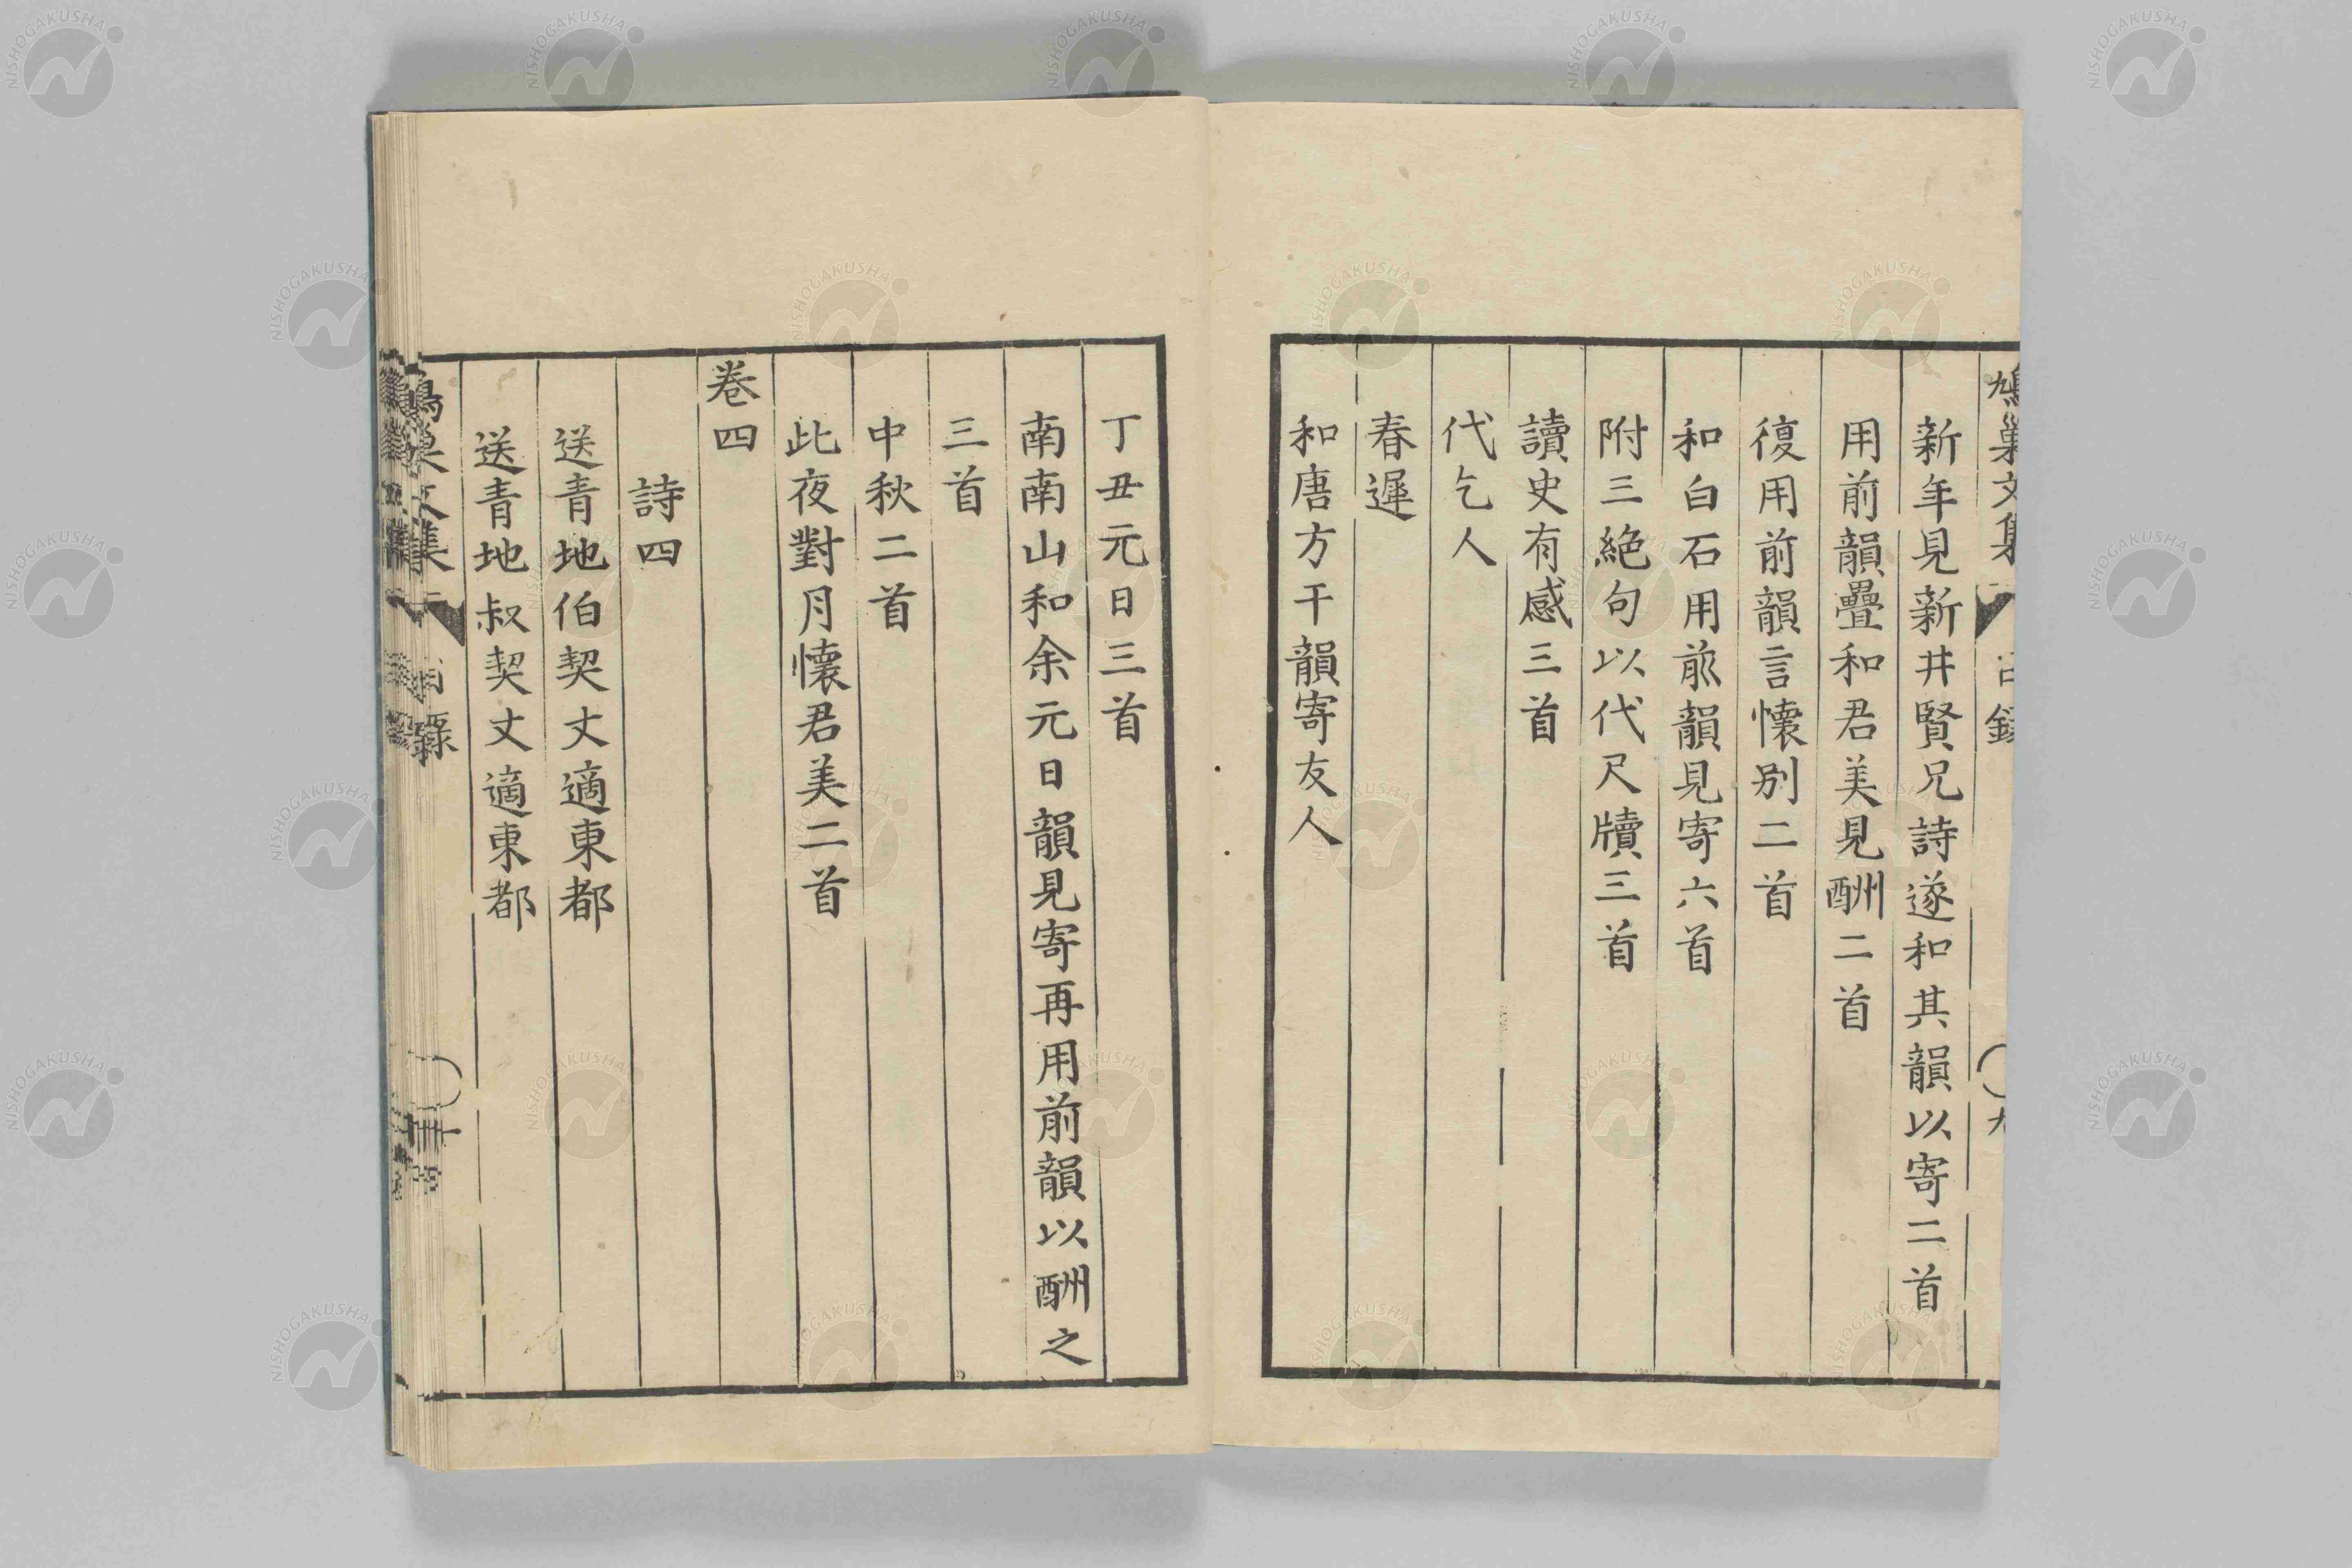 鳩巢文集 目録 九
新年見新井賢兄詩遂和其韻以寄二首
用前韻疊和君美見酬二首
復用前韻言懷別二首
和白石用前韻見寄六首
附三絶句以代尺牘三首
讀史有感三首
代乞人
春遲
和唐方干韻寄友人
丁丑元日三首
南南山和余元日韻見寄再用前韻以酬之
三首
中秋二首
此夜對月懷君美二首
卷四
詩四
送青地伯契丈適東都
送青地叔契丈適東都
鳩巢文集 目錄
NISHOGAKUSHA